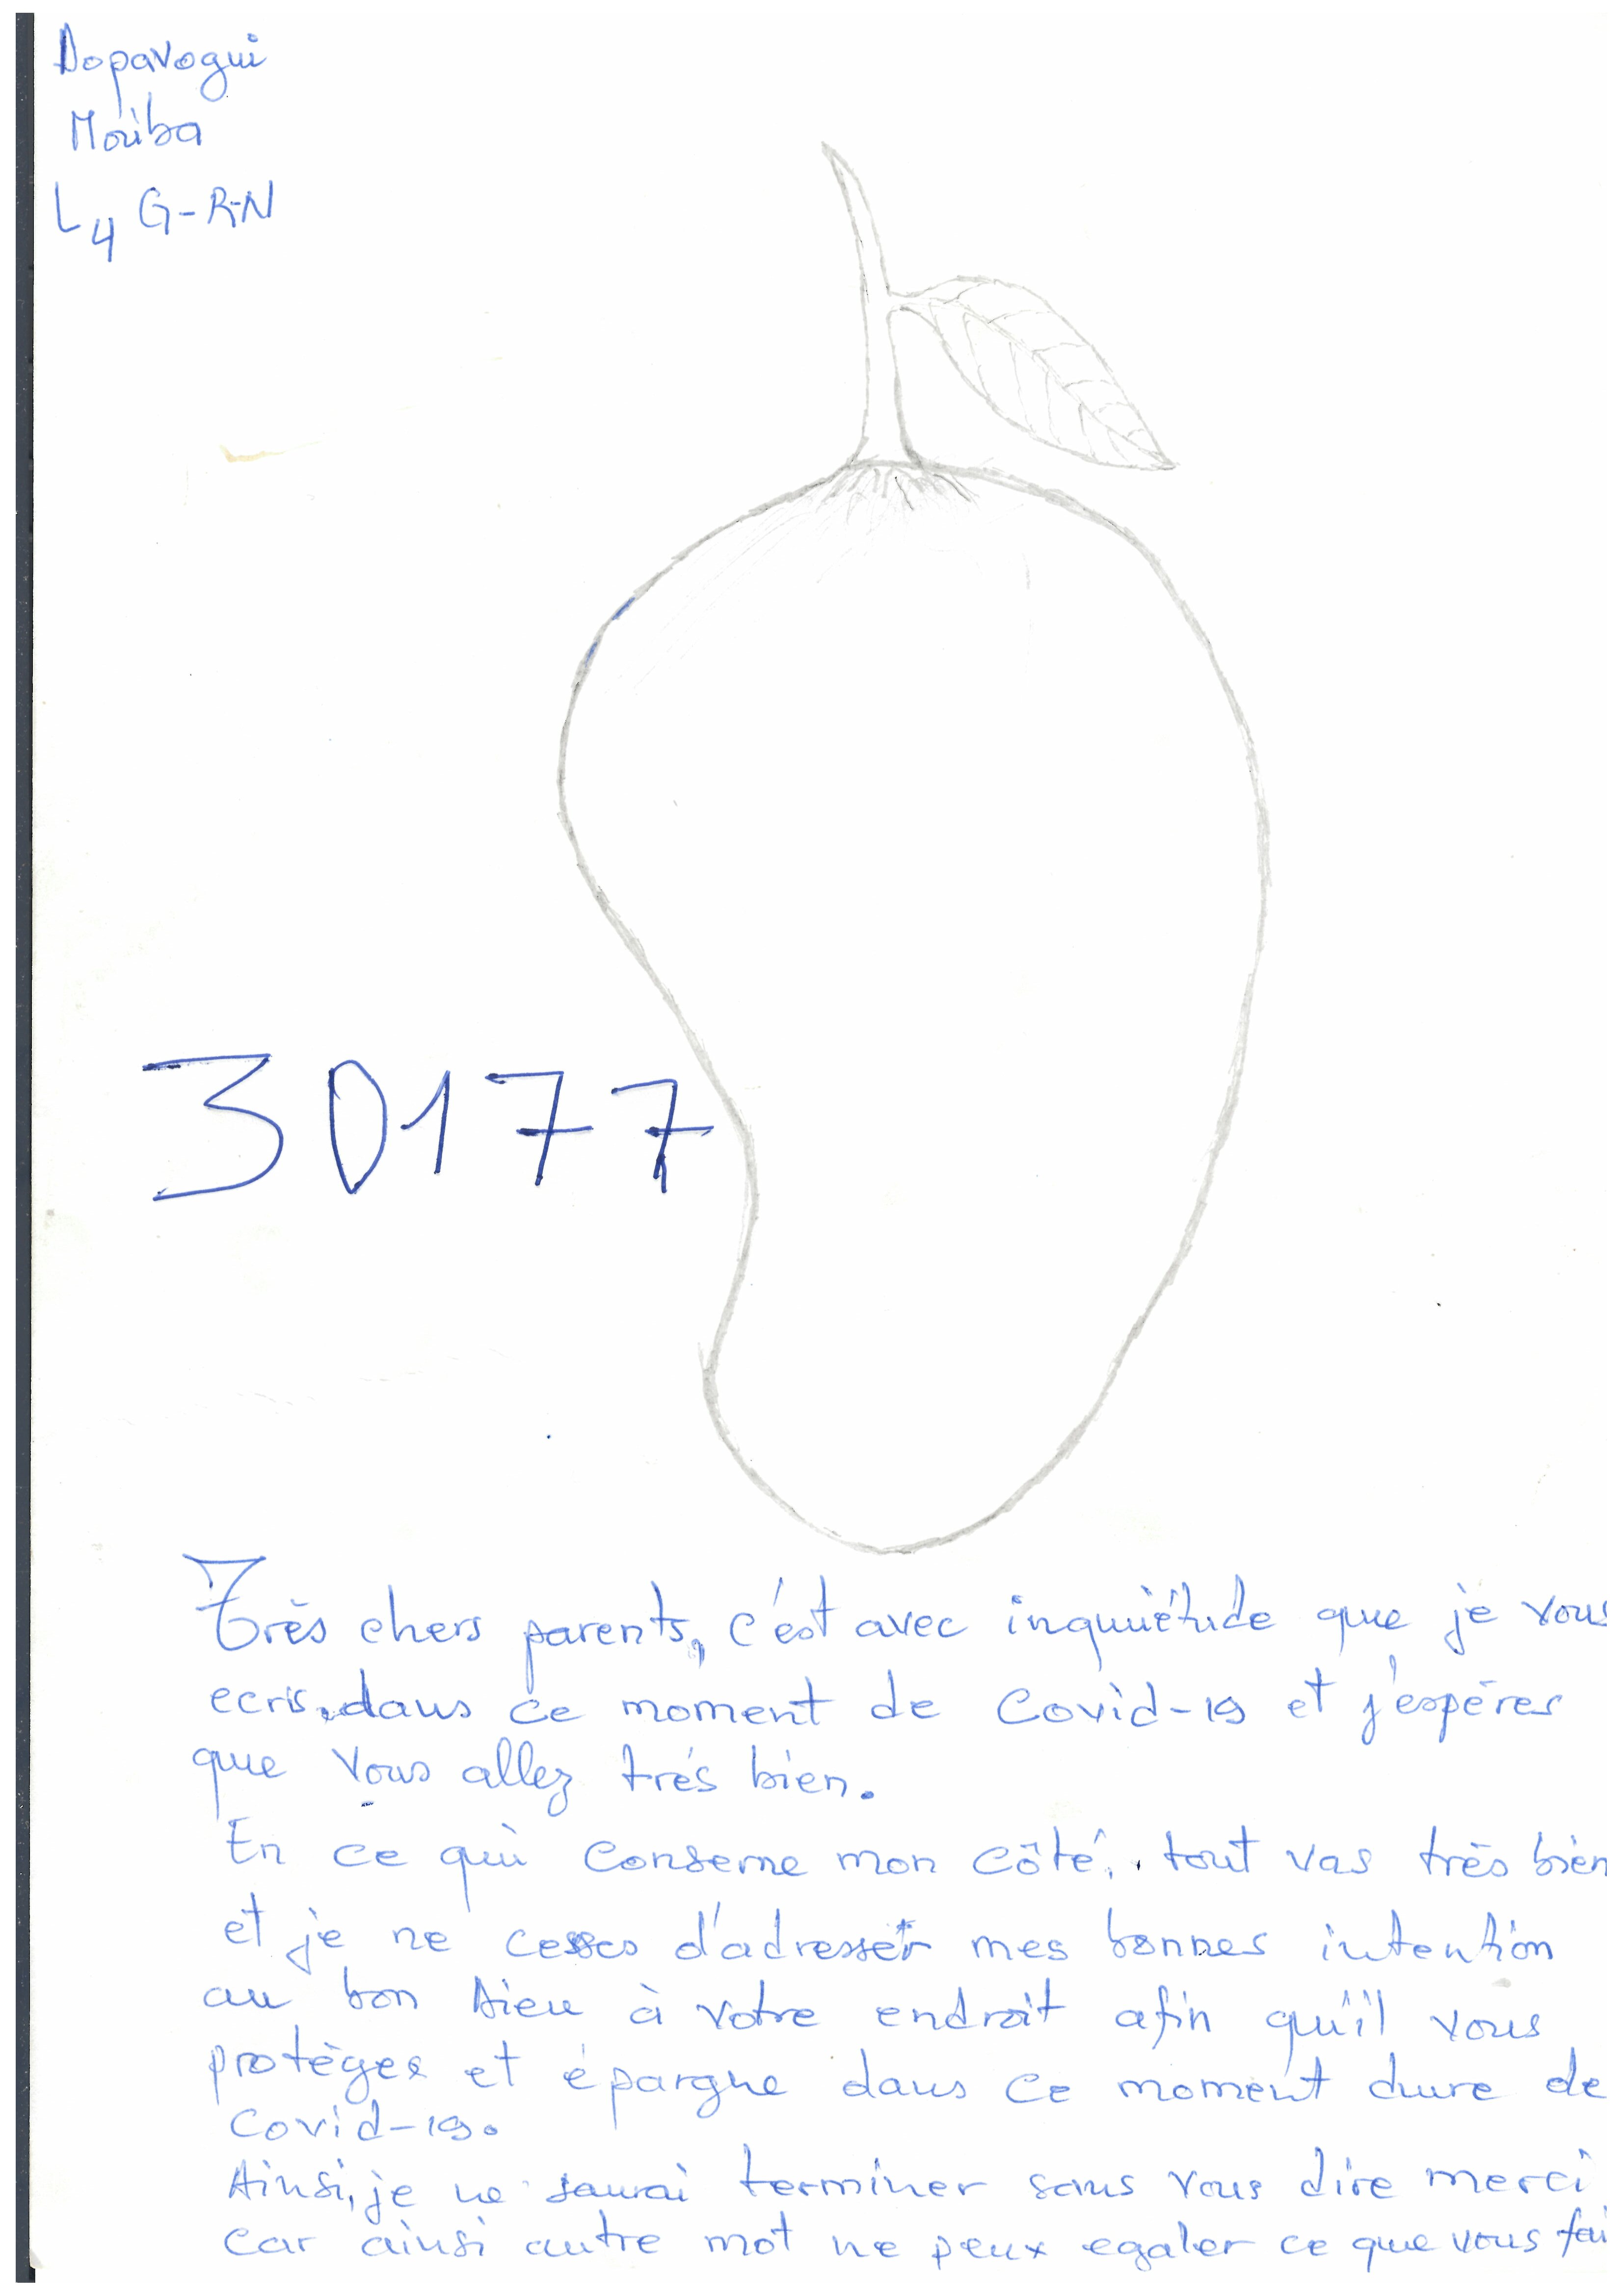 Dopavogui
Moriba
L4 G-R-N
30177
Très chers parents, c'est avec inquiétude que je vous
ecris, dans ce moment de Covid-19 et j'espères
que vous allez très bien.
En ce qui conserne mon côté, tout vas très bien
et je ne cesses d'adresser mes bonnes intention
au bon Dieu à votre endroit afin qu'il vous
protèges et épargne dans ce moment dure de
Covid-19.
Ainsi, je ne saurai terminer sans vous dire merci
car ainsi autre mot ne peux egaler ce que vous fai